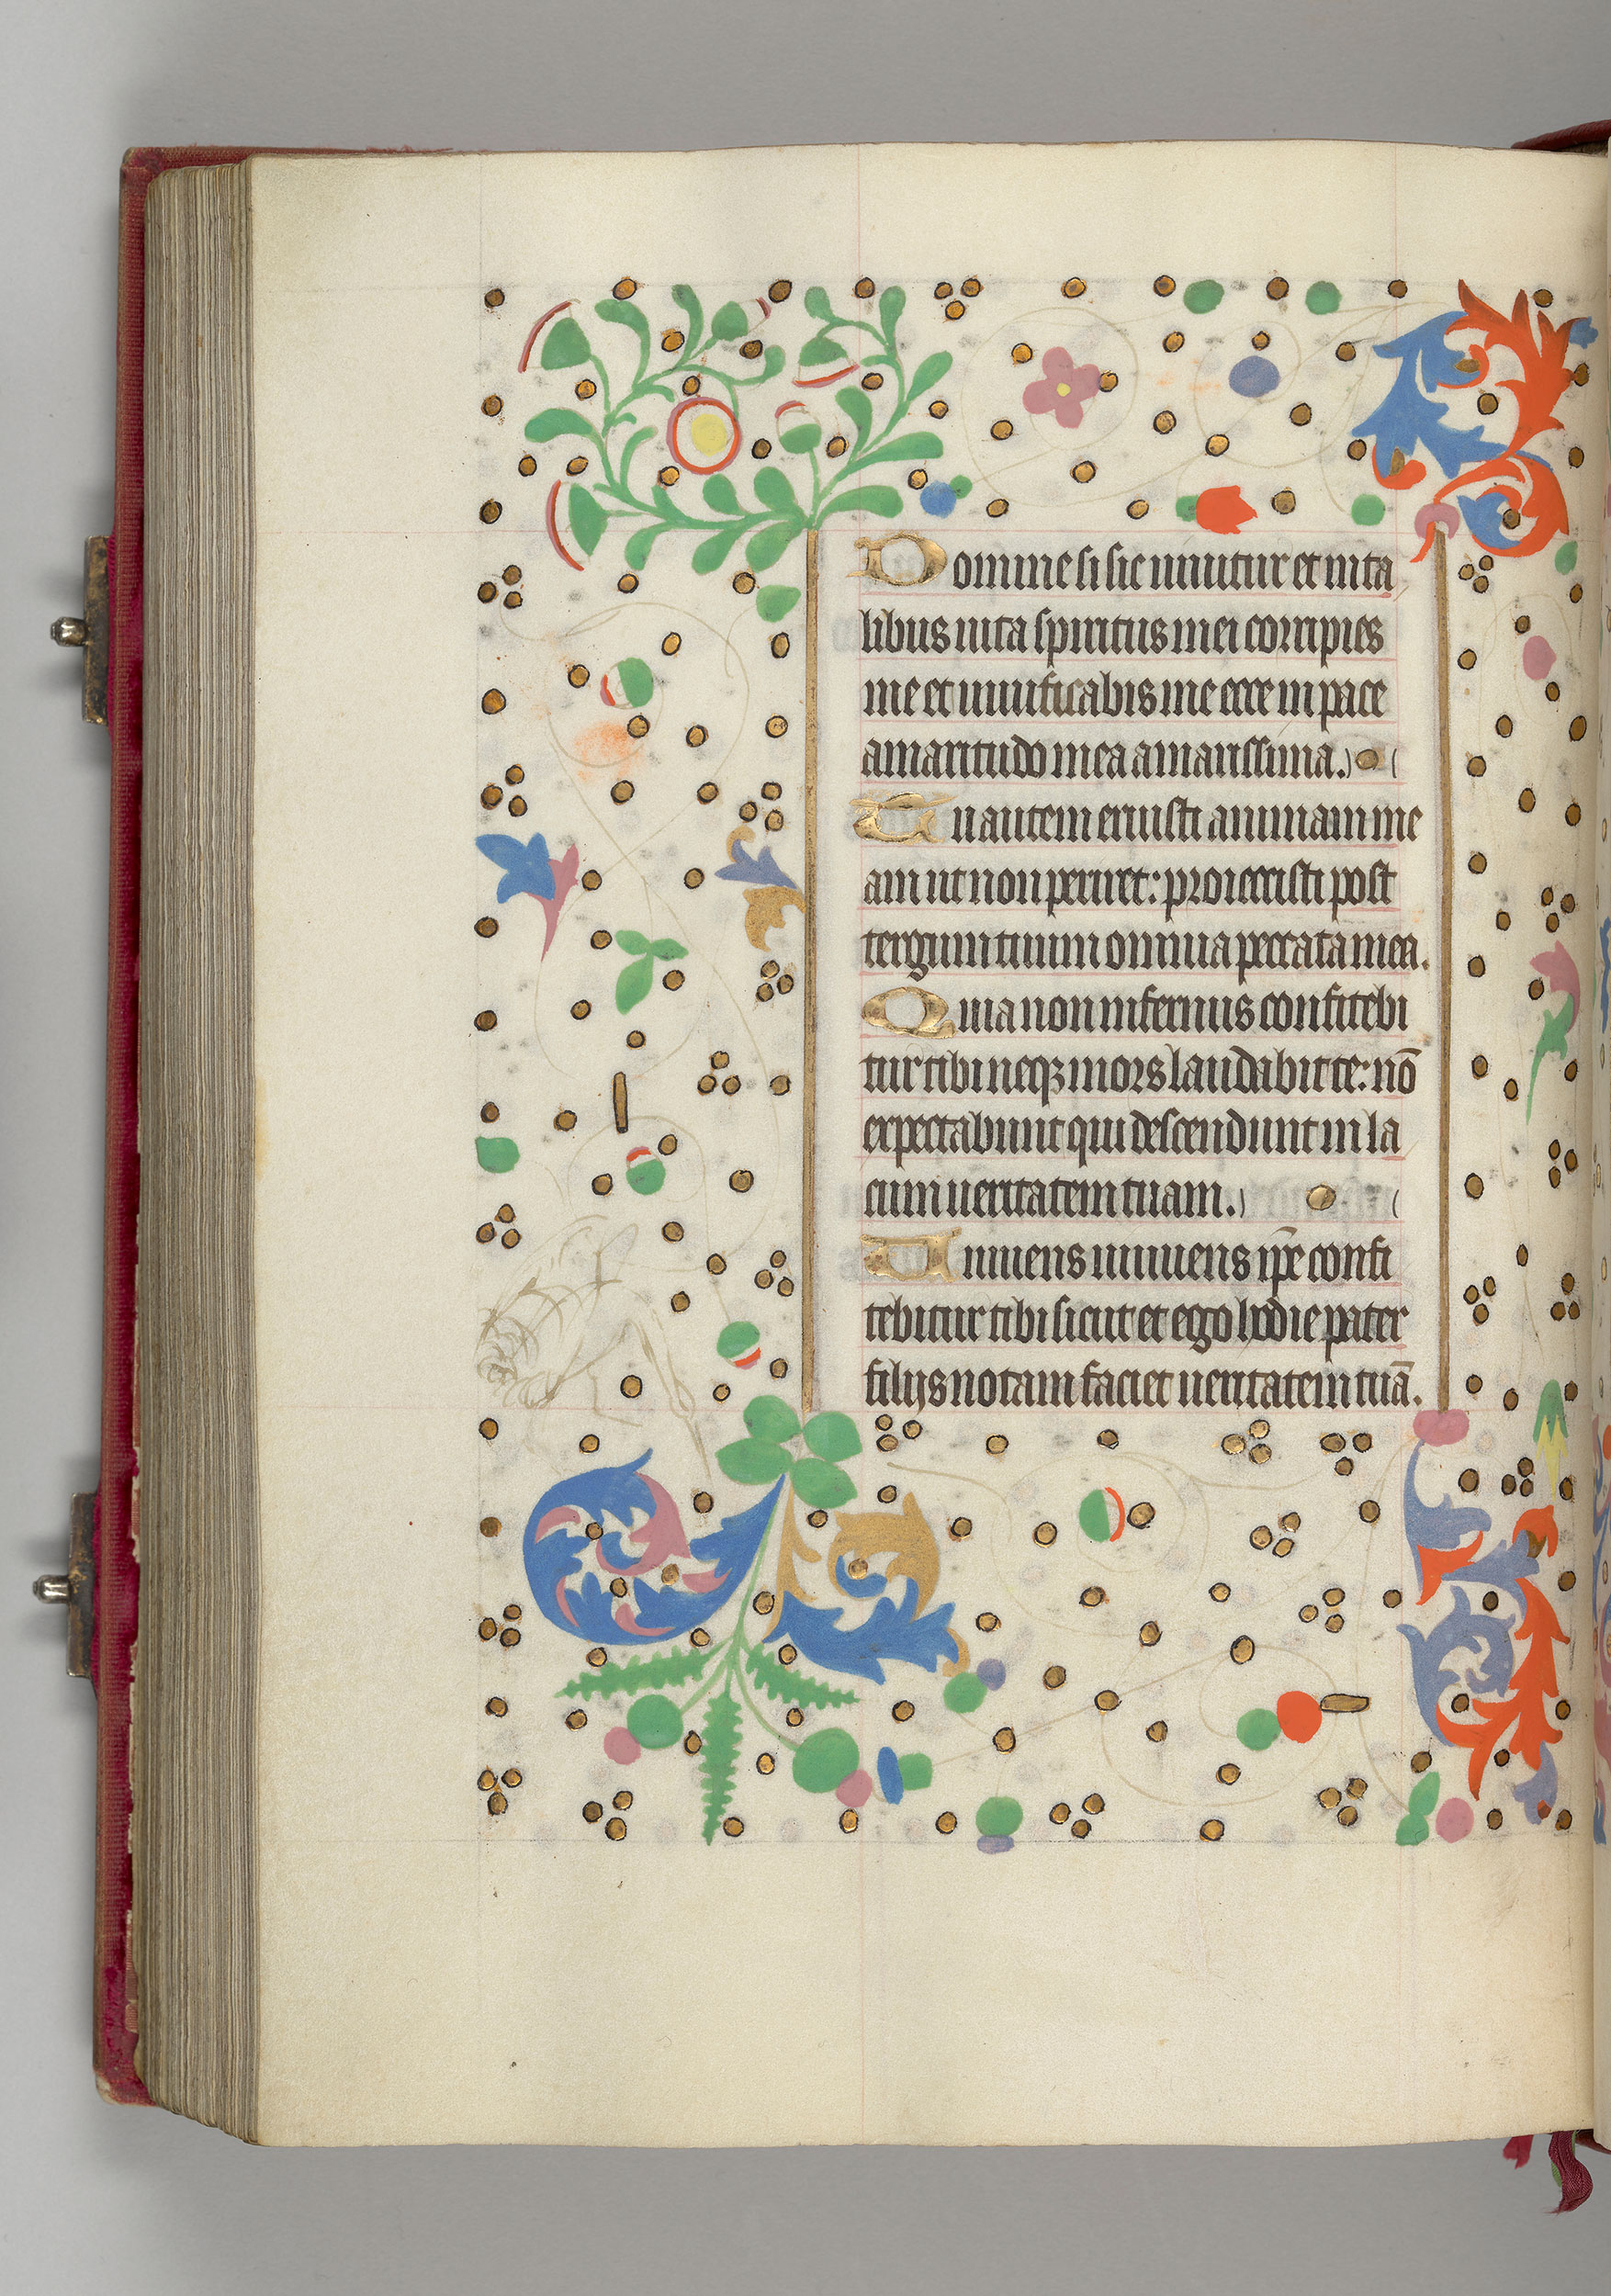 Domine si sic uiuitur et in ta
libus uita spiritus mei corripies
me et uiuificabis me ecce in pace
amaritudo mea amarissima.
Tu autem eruisti animam me
am ut non periret: proiecisti post
tergum tuum omnia peccata mea.
Quia non infernus confitebi
tur tibi neqꝫ mors laudabit te: nō
expectabunt qui descendunt in la
cum ueritatem tuam.
Uiuens uiuens ip̄e confi
tebitur tibi sicut et ego hodie pater
filijs notam faciet ueritatem tuā.